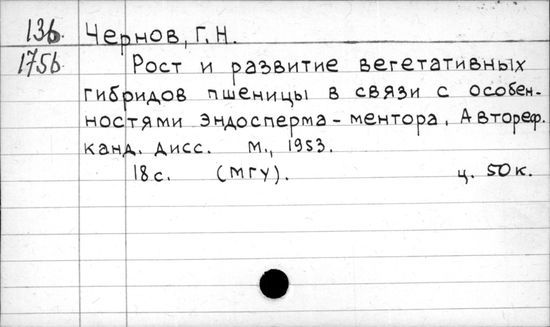 13б. Чернов, Г.Н.
175б Рост и развитие вегетативных
гибридов пшеницы в связи с особен-
ностями эндосперма - ментора. Автореф.
канд. дисс. М., 1953.
18 с. (МГУ). ц. 50 к.